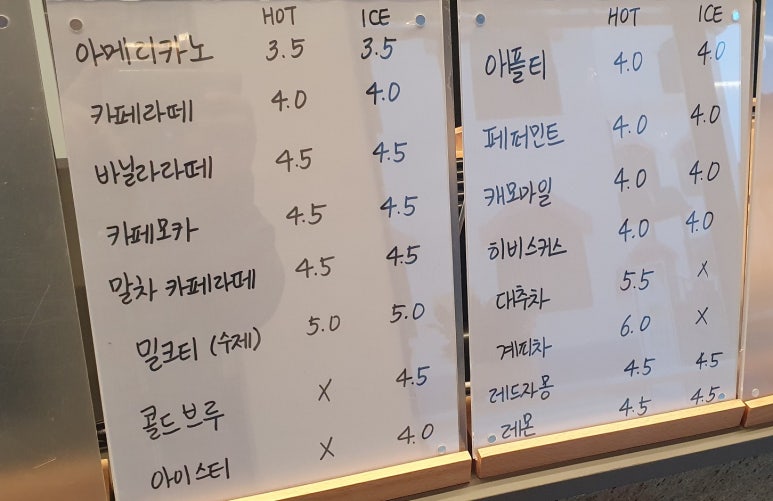 HOT ICE
아메리카노 3.5 3.5
카페라떼 4.0 4.0
바닐라라떼 4.5 4.5
카페모카 4.5 4.5
말차 카페라떼 4.5 4.5
밀크티 (수제) 5.0 5.0
콜드브루 X 4.5
아이스티 X 4.0
HOT ICE
애플티 4.0 4.0
페퍼민트 4.0 4.0
캐모마일 4.0 4.0
히비스커스 4.0 4.0
대추차 5.5 X
계피차 6.0 X
레드자몽 4.5 4.5
레몬 4.5 4.5